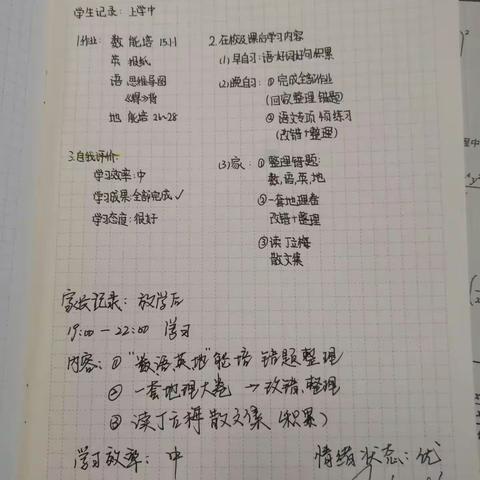 学生记录：上学中
1.作业：数 能培 15.1.1
英 报纸
语 思维导图
《蝉》背
地 能培 21~28
2.在校及课后学习内容
(1)早自习：语·好词好句积累
(2)晚自习：① 完成全部作业
(回家整理错题)
② 语文专项练习
(改错+整理)
(3)家：① 整理错题：
数,语,英,地
②一套地理卷
改错+整理
③读丁立梅
散文集
3.自我评价
学习效率：中
学习成果：全部完成✓
学习态度：很好
家长记录：放学后
19:00—22:00 学习
内容：①"数语英地"能培 错题整理
② 一套地理大卷 →改错、整理
③ 读丁立梅散文集（积累）
学习效率：中
情绪状态：优